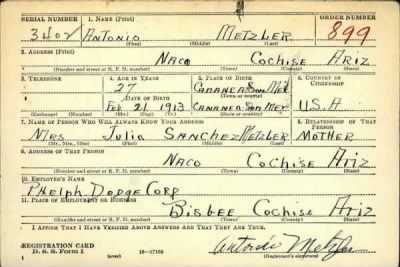 SERIAL NUMBER 1. NAME (Print) ORDER NUMBER
3402 Antonio Metzler 899
(First) (Middle) (Last)
2. ADDRESS (Print)
Naco Cochise Ariz
(Number and street or R. F. D. number) (Town) (County) (State)
3. TELEPHONE 4. AGE IN YEARS 5. PLACE OF BIRTH 6. COUNTRY OF CITIZENSHIP
27 Cananea Son Mex
DATE OF BIRTH (Town or county)
Feb 21 1913 Cananea Son Mex U.S.A
(Exchange) (Number) (Mo.) (Day) (Yr.) (State or country)
7. NAME OF PERSON WHO WILL ALWAYS KNOW YOUR ADDRESS 8. RELATIONSHIP OF THAT PERSON
Mrs Julia Sanchez Metzler Mother
(Mr., Mrs., Miss) (First) (Middle) (Last)
9. ADDRESS OF THAT PERSON
Naco Cochise Ariz
(Number and street or R. F. D. number) (Town) (County) (State)
10. EMPLOYER'S NAME
Phelph Dodge Corp
11. PLACE OF EMPLOYMENT OR BUSINESS
Bisbee Cochise Ariz
(Number and street or R. F. D. number) (Town) (County) (State)
I AFFIRM THAT I HAVE VERIFIED ABOVE ANSWERS AND THAT THEY ARE TRUE.
REGISTRATION CARD
D. S. S. Form 1 (over) 16—17105 Antonio Metzler
(Registrant's signature)